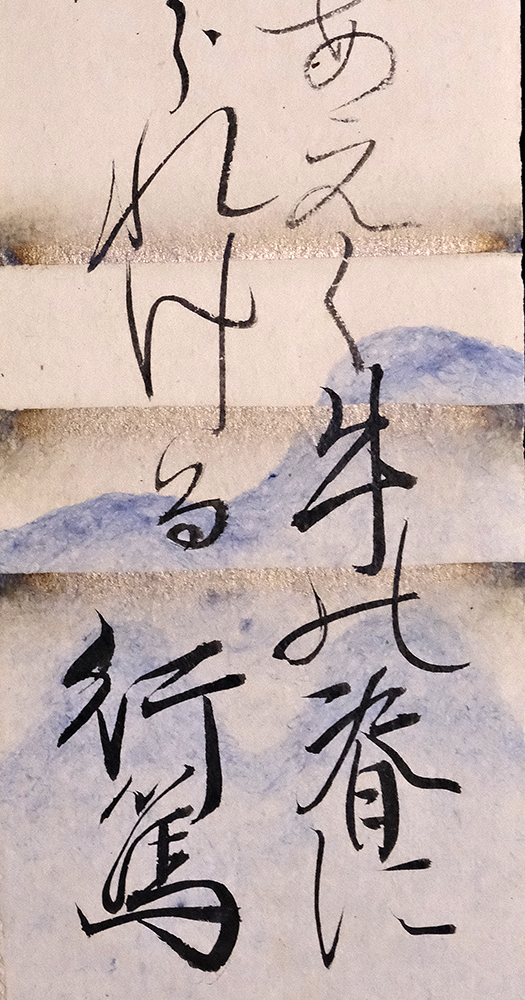 あえく牛の脊に
れける 行篤